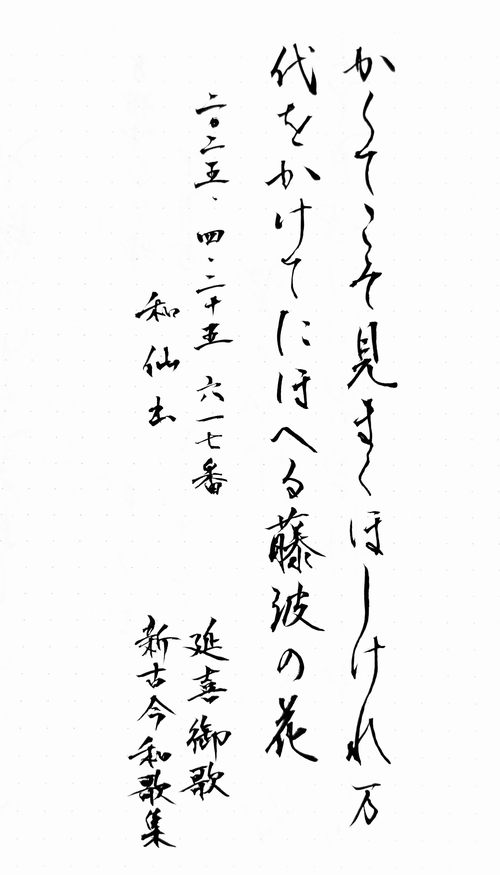 かくてこそ見まくほしけれ万
代をかけてにほへる藤波の花
延喜御歌
新古今和歌集
二〇二五、四、二十五 六一七番
和仙書